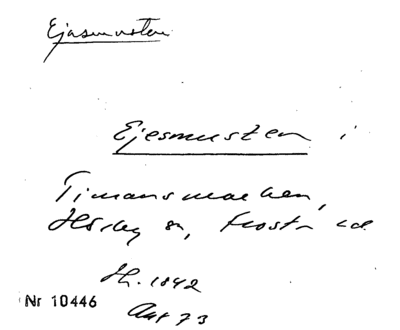 Ejesmusten
Ejesmusten i
Timansmarken,
Hörby sn, Frosta hd
Sh. 1842
Nr 10446
Avs 73